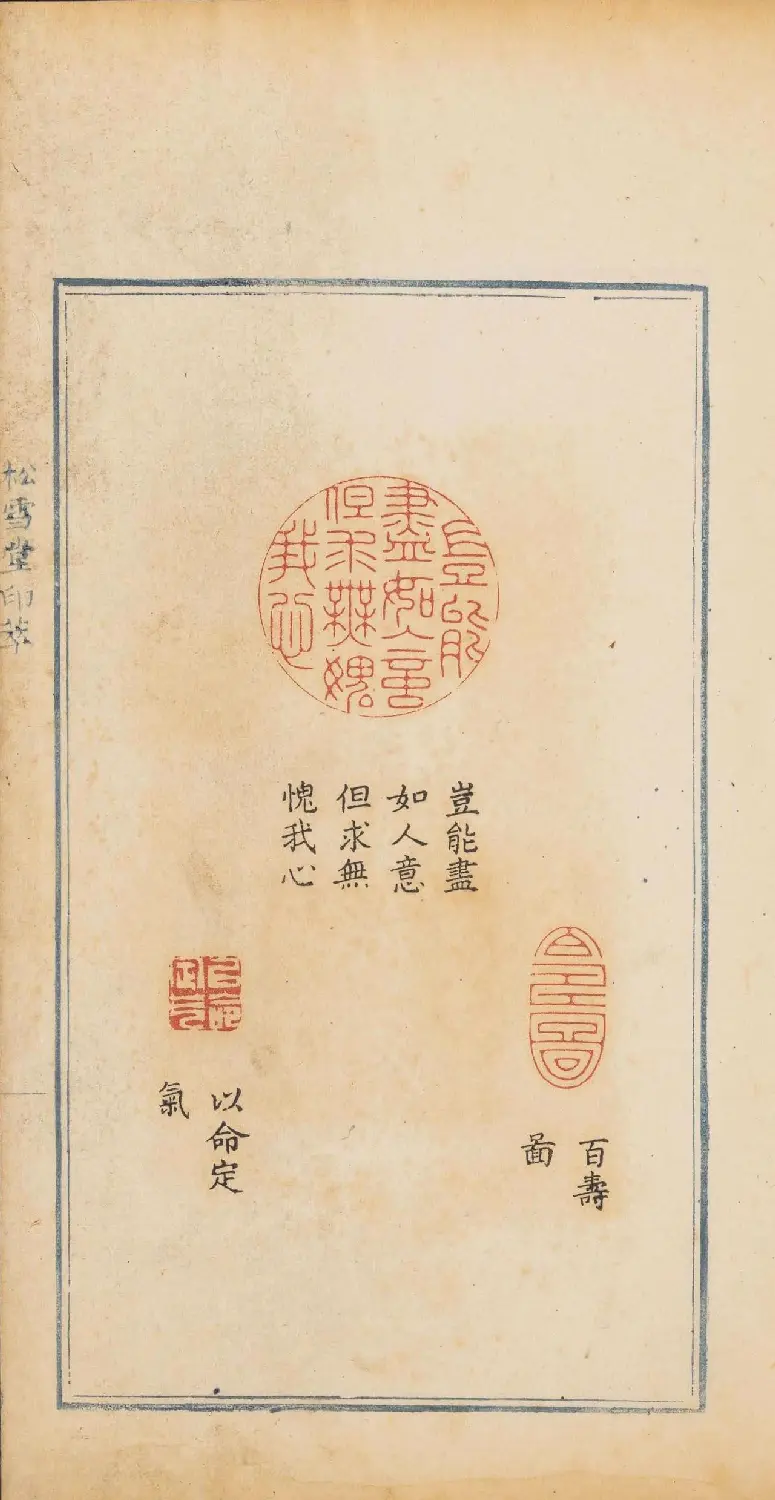 豈能
盡如人意
但求無愧
我心
豈能盡
如人意
但求無
愧我心
百壽
啚
以命定
氣
松雪堂印萃